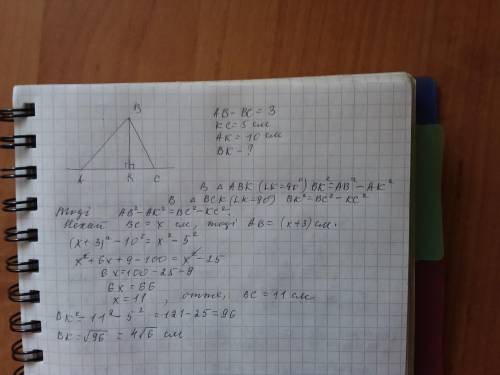 B
A K C
AB - BC = 3
KC = 5 см
AK = 10 см
BK - ?
В △ ABK (∠K=90°) BK²=AB²-AK²
В △ BCK (∠K=90°) BK²=BC²-KC²
Тоді AB²-AK²=BC²-KC².
Нехай BC = x см, тоді AB = (x+3) см.
(x+3)²-10²=x²-5²
x²+6x+9-100=x²-25
6x=100-25-9
6x=66
x=11, отже, BC=11 см
BK²=11²-5²=121-25=96
BK=√96=4√6 см